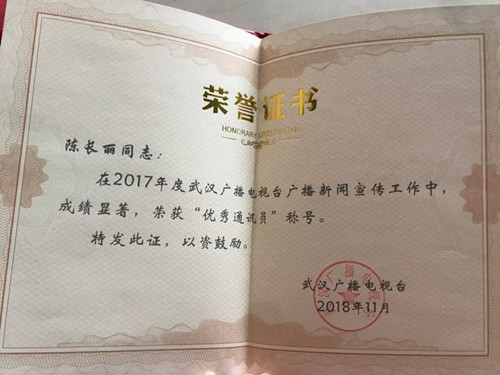 荣誉证书
HONORARY CREDENTIAL
陈长丽同志：
在2017年度武汉广播电视台广播新闻宣传工作中，
成绩显著，荣获“优秀通讯员”称号。
特发此证，以资鼓励。
武汉广播电视台
2018年11月